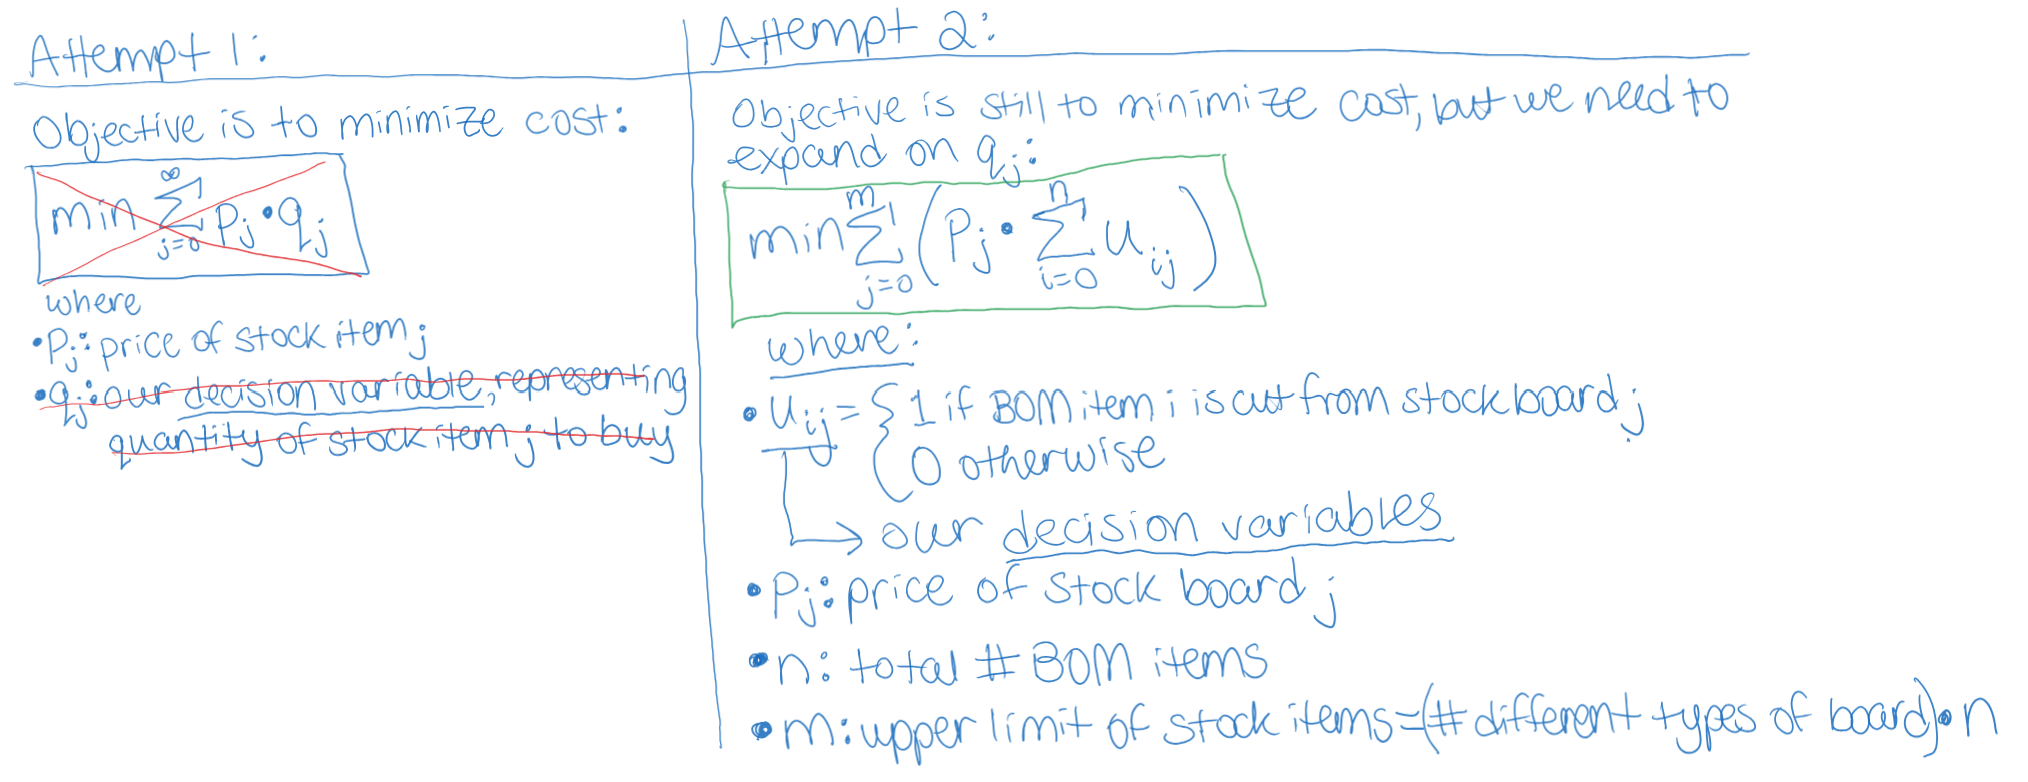 Attempt 1:
Objective is to minimize cost:
min ∞ Σ j=0 Pj • qj
where
• Pj: price of stock item j
• qj: our decision variable, representing
quantity of stock item j to buy
Attempt 2:
Objective is still to minimize cost, but we need to
expand on qj:
min m Σ j=0 (Pj • n Σ i=0 uij)
where:
• uij = { 1 if BOM item i is cut from stock board j
0 otherwise
→ our decision variables
• Pj: price of stock board j
• n: total # BOM items
• m: upper limit of stock items = (# different types of board) • n